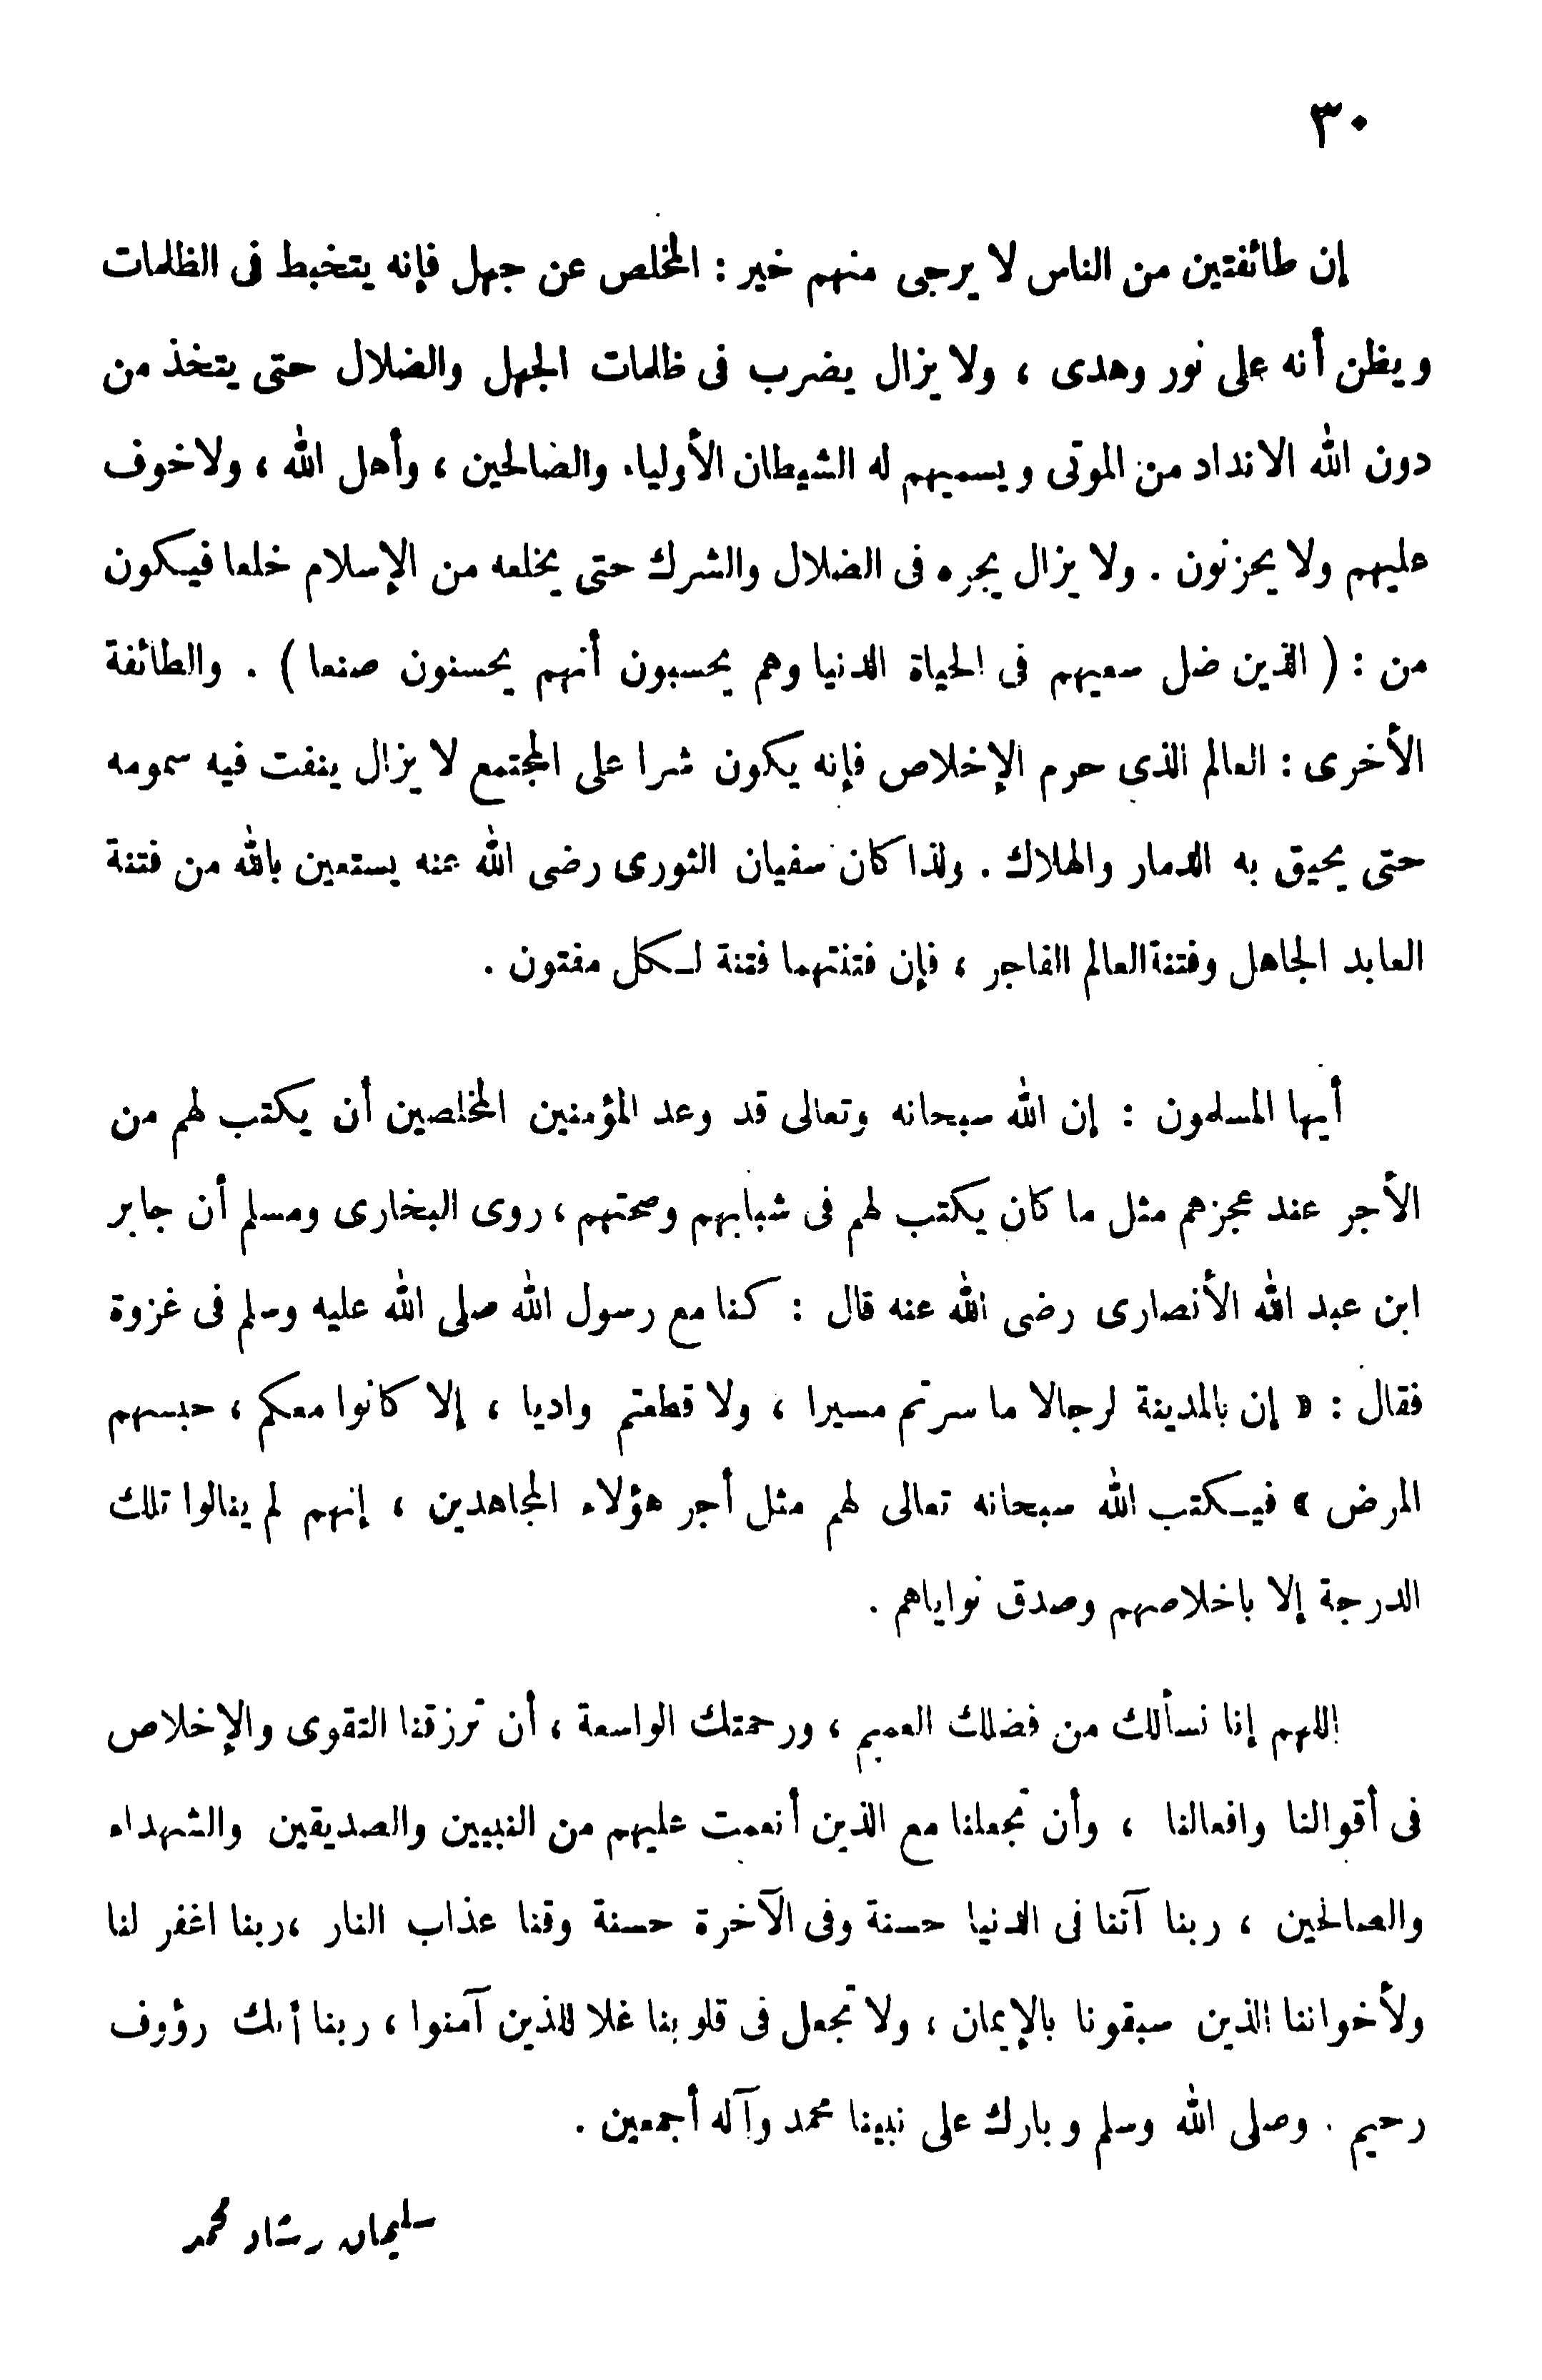 ٣٠
إن طائفتين من الناس لا يرجى منهم خير : المخلص عن جهل فإنه يتخبط فى الظلمات
ويظن أنه على نور وهدى ، ولا يزال يضرب فى ظلمات الجهل والضلال حتى يتخذ من
دون الله الانداد من الموتى ويسميهم له الشيطان الأولياء والصالحين ، وأهل الله ، ولاخوف
عليهم ولا يحزنون . ولا يزال يجره فى الضلال والشرك حتى يخلعه من الإسلام خلعا فيكون
من : ( الذين ضل سعيهم فى الحياة الدنيا وهم يحسبون أنهم يحسنون صنعا ) . والطائفة
الأخرى : العالم الذى حرم الإخلاص فإنه يكون شرا على المجتمع لا يزال ينفت فيه سمومه
حتى يحيق به الدمار والهلاك . ولذا كان سفيان الثورى رضى الله عنه يستعين بالله من فتنة
العابد الجاهل وفتنة العالم الفاجر ، فإن فتنتهما فتنة لكل مفتون .
أيها المسلمون : إن الله سبحانه وتعالى قد وعد المؤمنين المخلصين أن يكتب لهم من
الأجر عند عجزهم مثل ما كان يكتب لهم فى شبابهم وصحتهم ، روى البخارى ومسلم أن جابر
ابن عبد الله الأنصارى رضى الله عنه قال : كنا مع رسول الله صلى الله عليه وسلم فى غزوة
فقال : « إن بالمدينة لرجالا ما سرتم مسيرا ، ولا قطعتم واديا ، إلا كانوا معكم ، حبسهم
المرض » فيكتب الله سبحانه تعالى لهم مثل أجر هؤلاء المجاهدين ، إنهم لم ينالوا تلك
الدرجة إلا باخلاصهم وصدق نواياهم .
اللهم إنا نسألك من فضلك العميم ، ورحمتك الواسعة ، أن ترزقنا التقوى والإخلاص
فى أقوالنا وافعالنا ، وأن تجعلنا مع الذين أنعمت عليهم من النبيين والصديقين والشهداء
والصالحين ، ربنا آتنا فى الدنيا حسنة وفى الآخرة حسنة وقنا عذاب النار ، ربنا اغفر لنا
ولأخواننا الذين سبقونا بالإيمان ، ولا تجعل فى قلوبنا غلا للذين آمنوا ، ربنا أنك رؤوف
رحيم . وصلى الله وسلم وبارك على نبينا محمد وآله أجمعين .
سليمان رشاد محمد